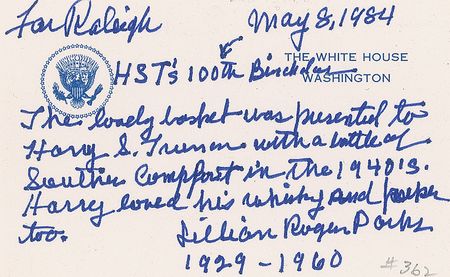 For Raleigh
May 8, 1984
HST's 100th Birthday
THE WHITE HOUSE
WASHINGTON
The lovely basket was presented to
Harry S. Truman with a bottle of
Southern Comfort in the 1940's.
Harry loved his whisky and poker
too.
Lillian Rogers Parks
1929-1960
#362